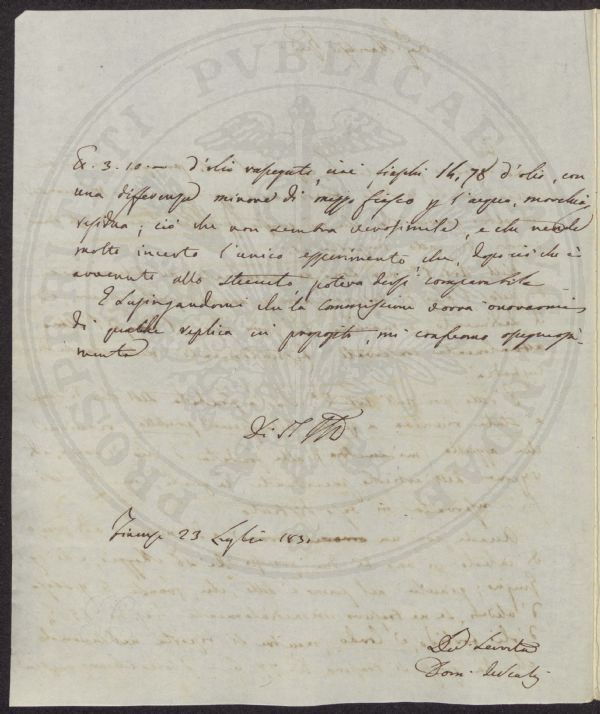 PROSPERITATI PVBLICAE AVGENDAE
3. 10. d'olio rasegato, cioè, fiaschi 14,78 d'olio, con
una differenza minore di mezzo fiasco p l'acqua, morchia
residua; ciò che non sembra verosimile, e che rende
molto incerto l'unico esperimento che, dopo ciò che è
avvenuto allo stecuto, poteva dirsi comparabile
E Lusingandomi che la Commissione vorrà onorarmi
di qualche replica in proposito, mi confermo ossequiosa-
mente
Di
Firenze 23 Luglio 183
Dev. Servitore
Dom.